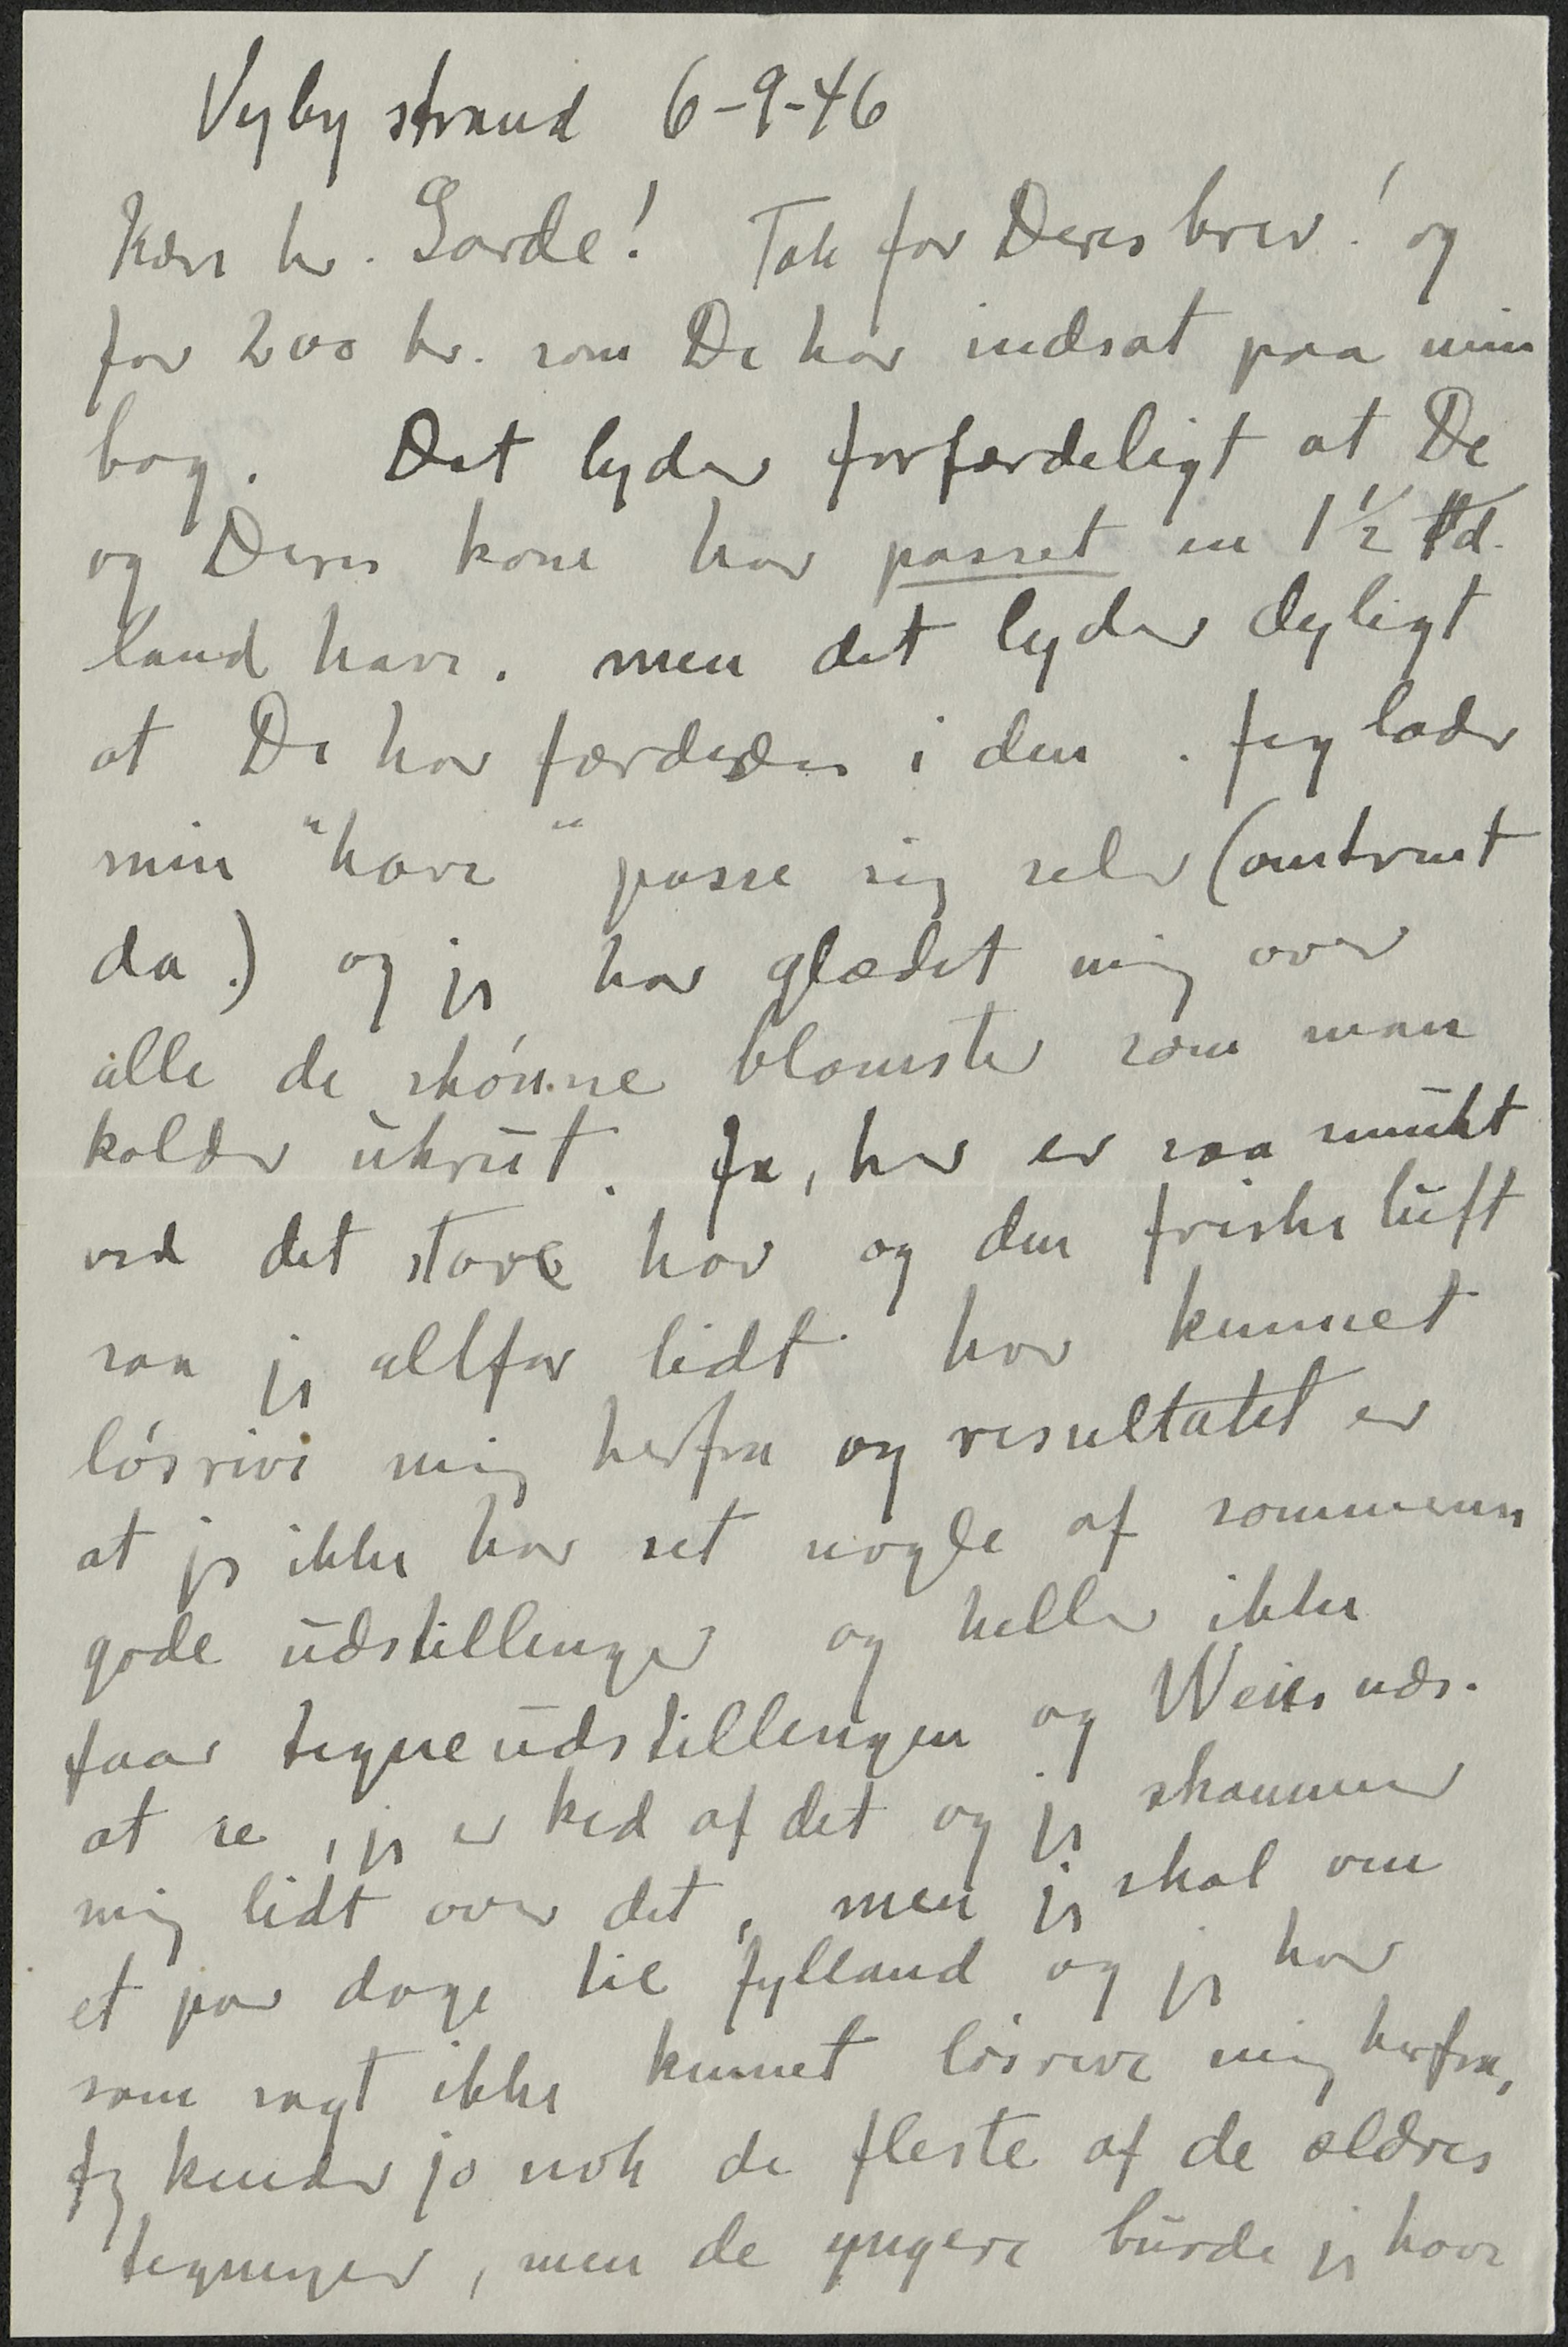 Vejby strand 6-9-46
Kære hr. Garde! Tak for Deres brev! og
for 200 kr. som De har indsat paa min
bog. Det lyder forfærdeligt at De
og Deres kone har passet en 1 1/2 td.
land have. men det lyder dejligt
at De har færdedes i den. Jeg lader
min "have" passe sig selv (omtrent
da.) og jeg har glædet mig over
alle de skónne blomster som man
kalder ukrut. Ja, her er saa smukt
ved det store hav og den friske luft
saa jeg altfor lidt har kunnet
lósrive mig herfra og resultatet er
at jeg ikke har set nogle af sommerens
gode udstillinger og heller ikke
faar tegneudstillingen og Weies uds.
at se, jeg er ked af det og jeg skammer
mig lidt over det, men jeg skal om
et par dage til Jylland og jeg har
som sagt ikke kunnet lósrive mig herfra,
Jeg kender jo nok de fleste af de ældres
tegninger, men de yngere burde jeg have